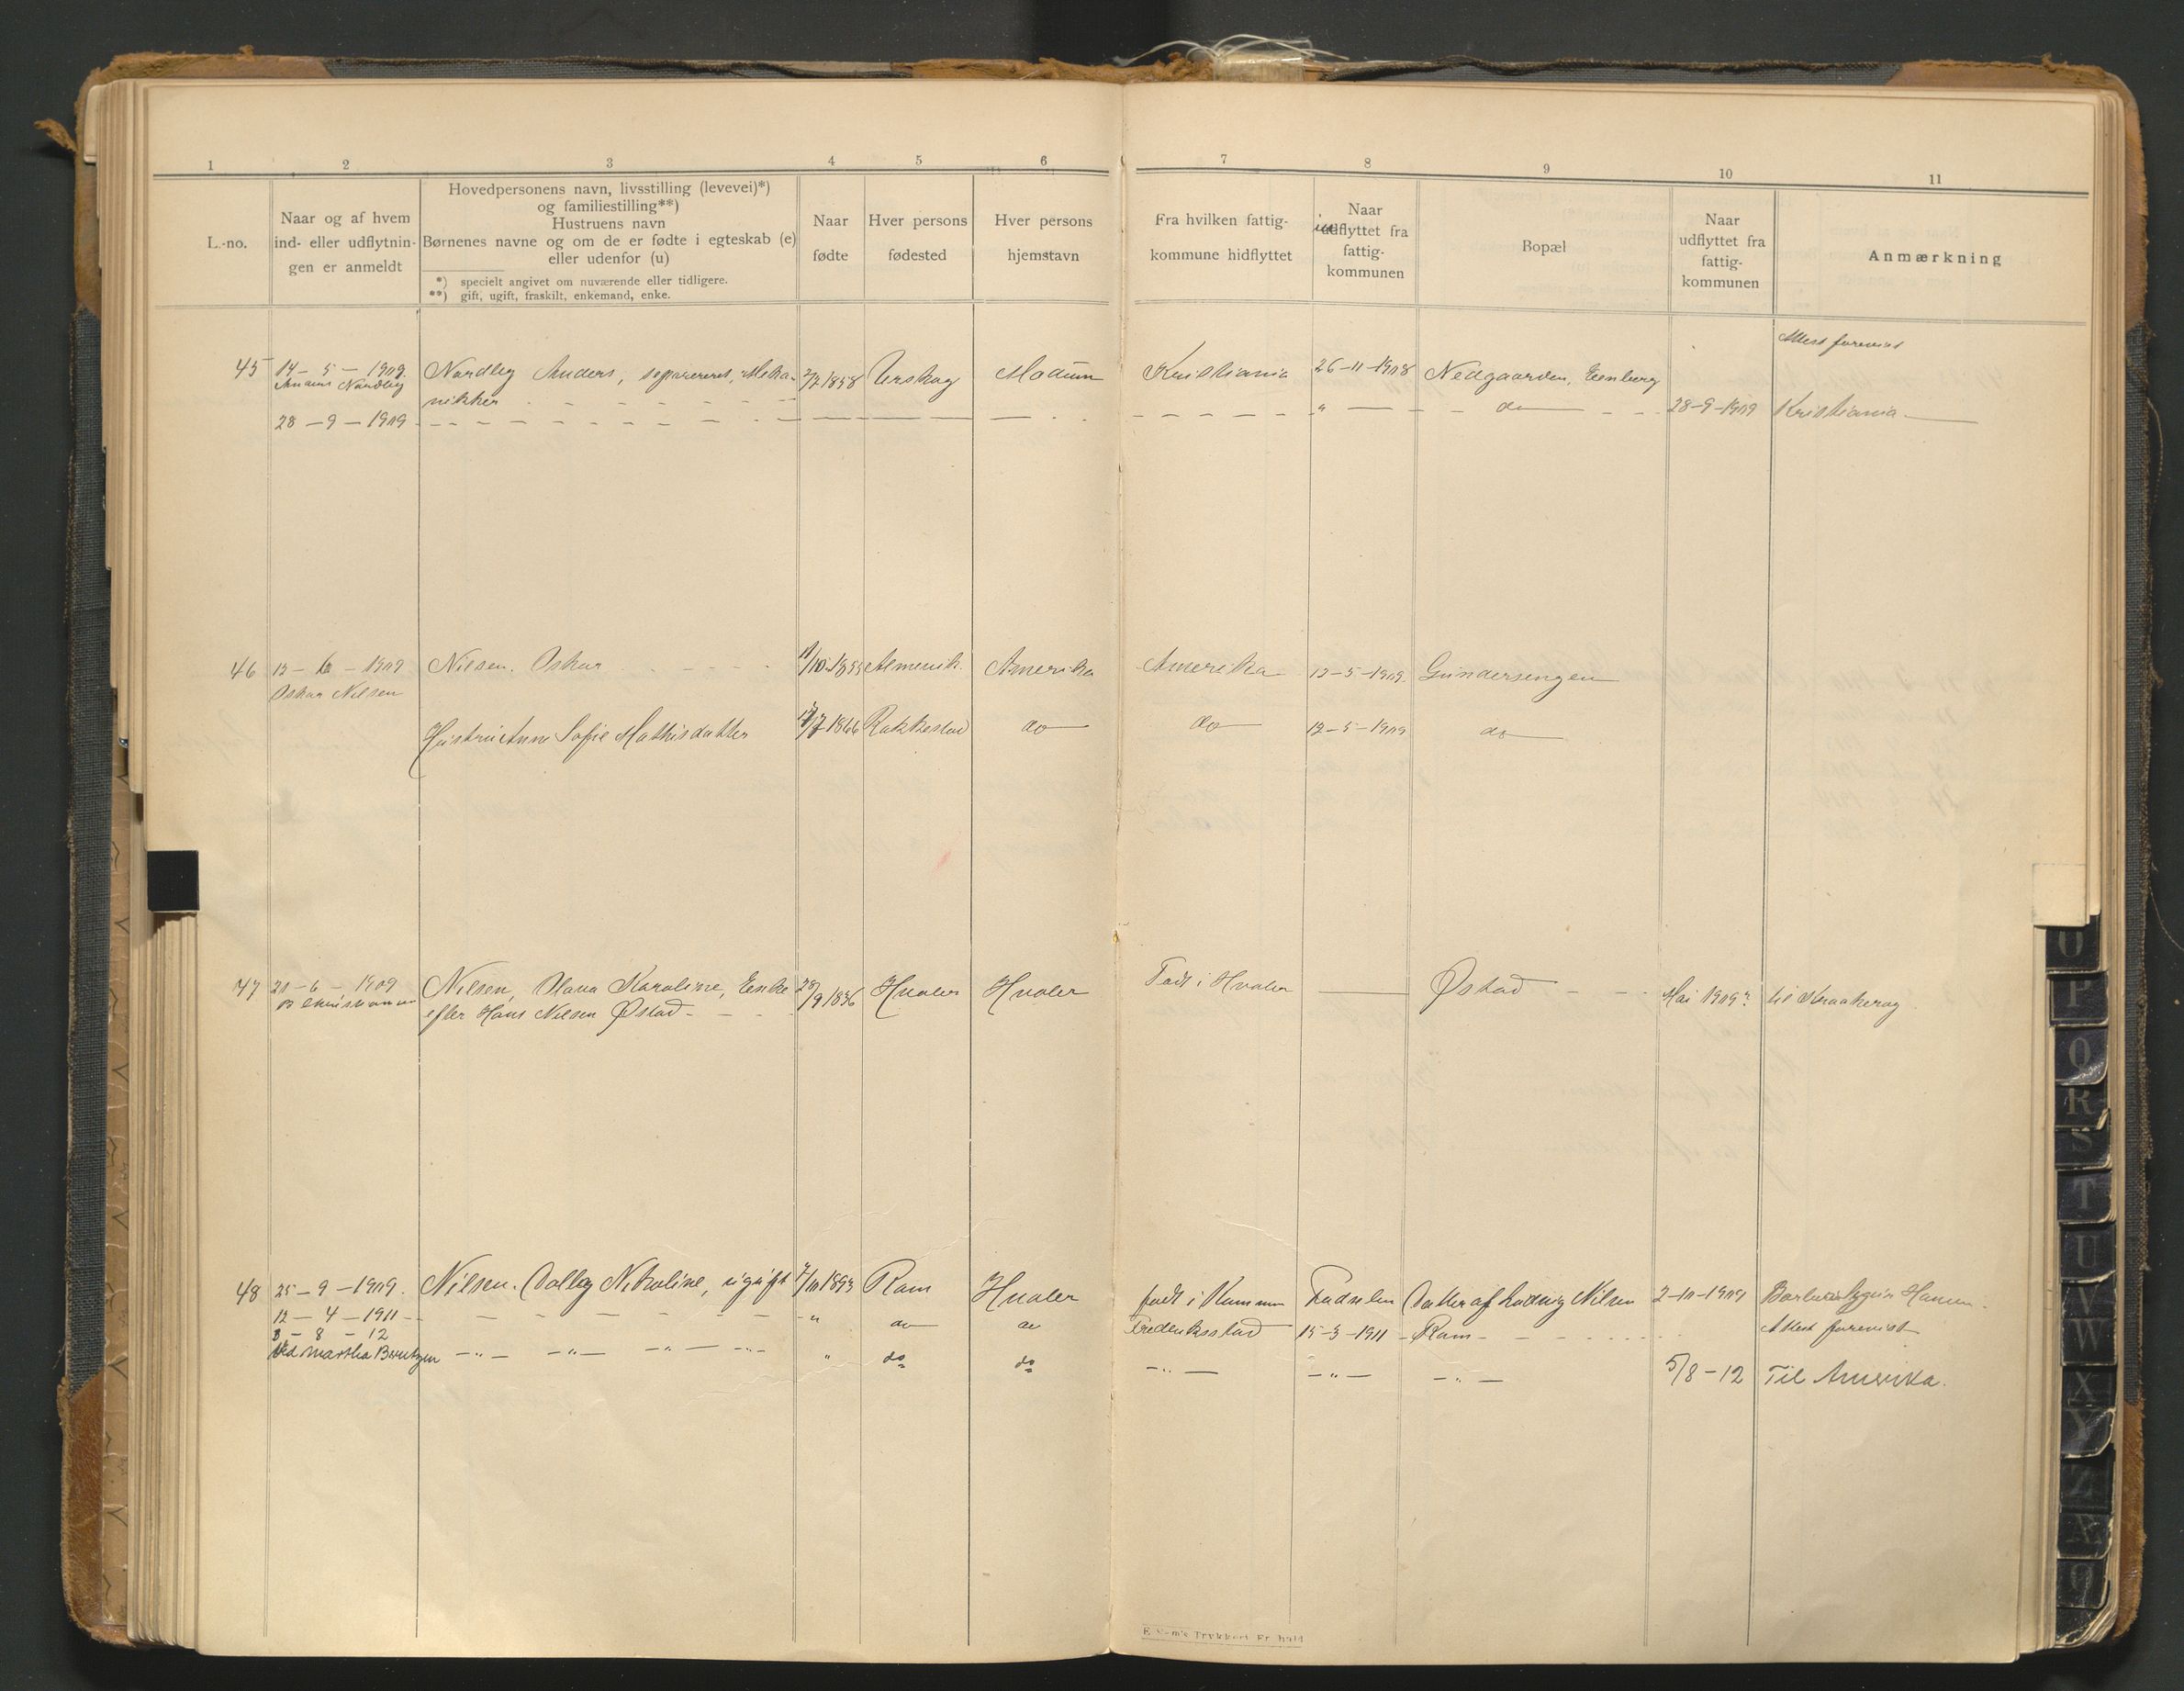 1 2 3 4 5 6 7 8 9 10 11
L.-no.
Naar og af hvem
ind- eller udflytnin-
gen er anmeldt
Hovedpersonens navn, livsstilling (levevei)*)
og familiestilling**)
Hustruens navn
Børnenes navne og om de er fødte i egteskab (e)
eller udenfor (u)
*) specielt angivet om nuværende eller tidligere.
**) gift, ugift, fraskilt, enkemand, enke.
Naar
fødte
Hver persons
fødested
Hver persons
hjemstavn
Fra hvilken fattig-
kommune hidflyttet
Naar
indflyttet fra
fattig-
kommunen
Bopæl
Naar
udflyttet fra
fattig-
kommunen
Anmærkning
Attest forevist
45 14-5-1909 Nordby Anders, separeret, Meka- 2/2 1858 Urskog Modum Kristiania 26-11-1908 Nedgaarden,
Anders Nordby nikker
28-9-1909 " do 28-9-1909 Kristiania
46 12-6-1909 Nilsen. Oskar Amerik. Amerika Amerika 12-5-1909 Gundersengen
Oskar Nilsen
Hustru Anne Sofie Mathisdatter 1866 Rakkestad do do 12-5-1909 do
47 21-6-1909 Nilsen, Olava Karoline, Enke 29/9 1836 Hvaler Hvaler Født i Hvaler Østad Mai 1909? til Kraakerøy
efter Hans Nilsen Østad
48 25-9-1909. Nilsen. Dolly Nikoline, ugift 7/10 1893 Ram Hvaler født i Kommun Fødselen Datter af Ludvig Nilsen 2-10-1909
12-4-1911 " do do Frederiksstad 15-3-1911 Ram Attest forevist
3-8-12
Ved Martha Berntzen " do do " " " 5/8-12 Til Amerika.
O
P
Q
R
S
T
U
V W
X
Y
Z
Æ
Ø